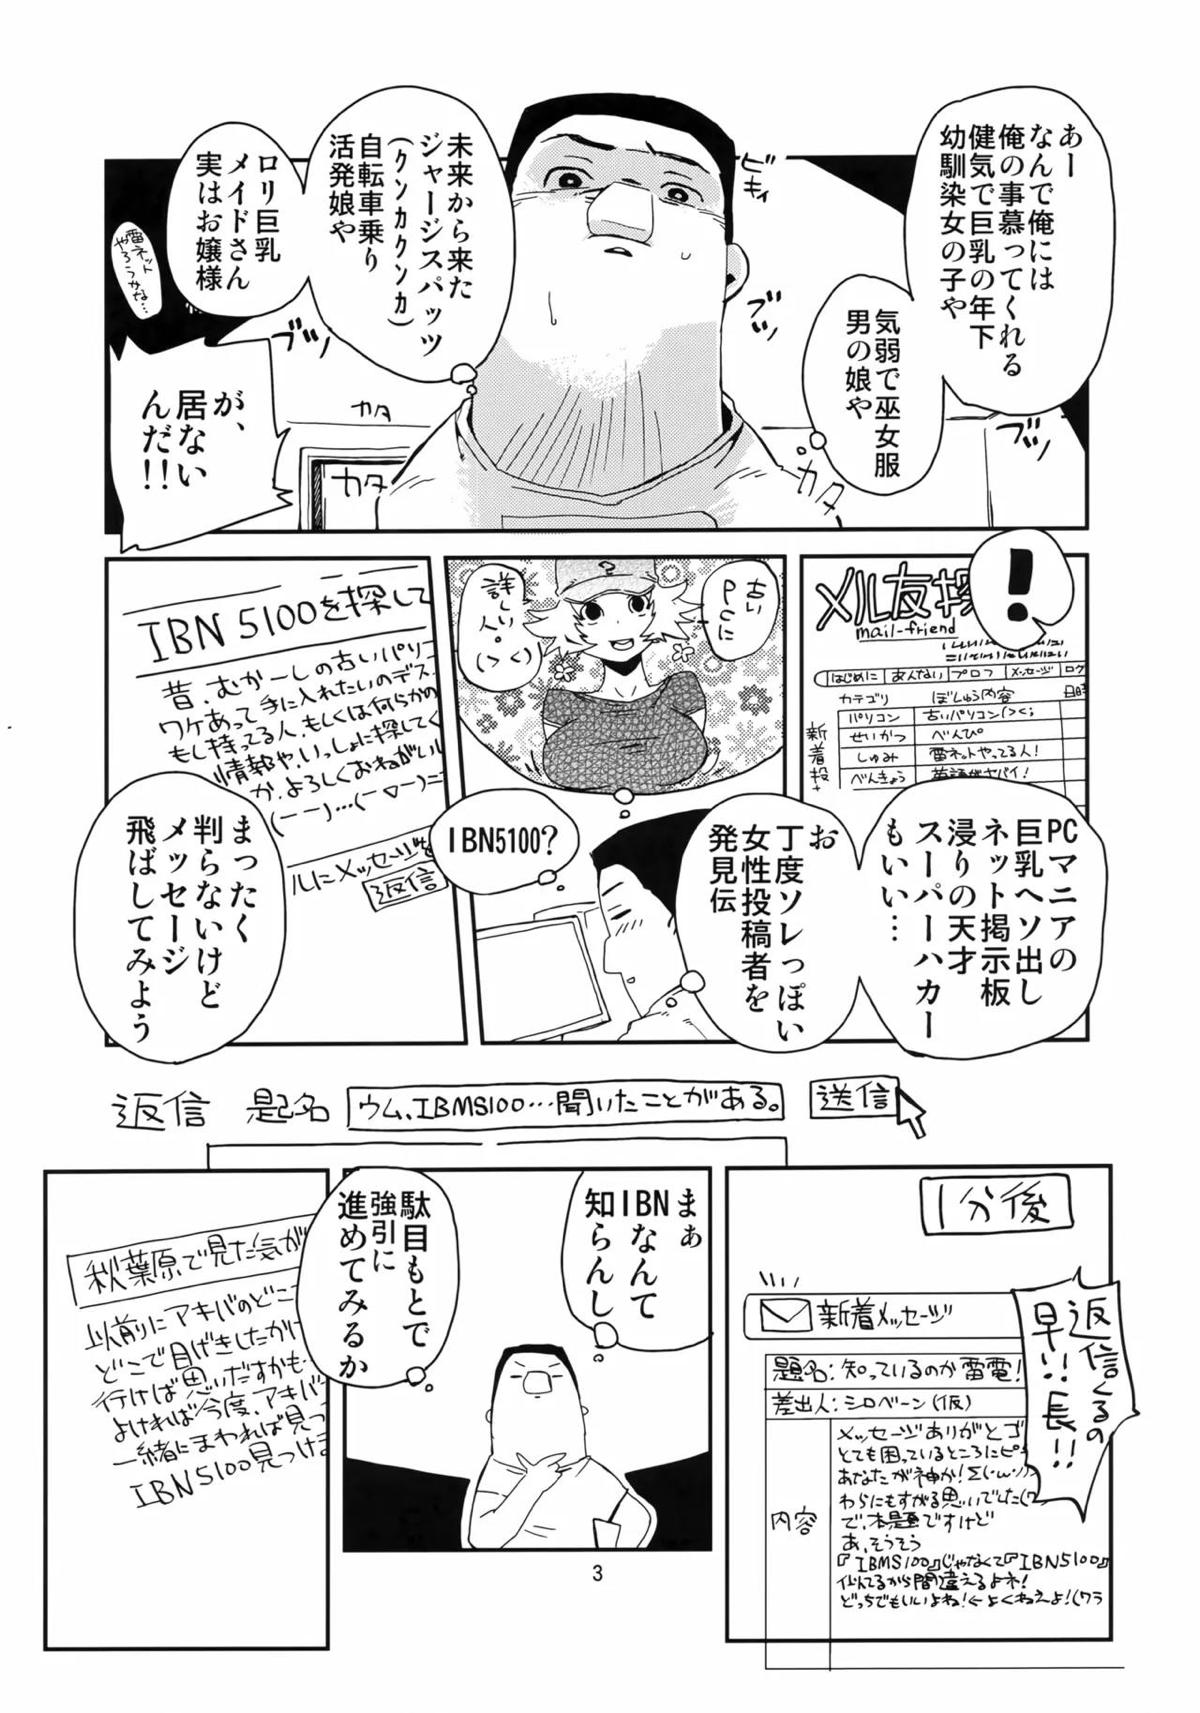 あー
なんで俺には
俺の事慕ってくれる
健気で巨乳の年下
幼馴染女の子や
気弱で巫女服
男の娘や
ピキィ
カタ
カタ
カタ
未来から来た
ジャージスパッツ
(クンカクンカ)
自転車乗り
活発娘や
ロリ巨乳
メイドさん
実はお嬢様
雷ネット
やろうかな…
が、
居ない
んだ!!
!
メル友探
mail-friend
はじめに
あんない
プロフ
メッセージ
ログ
カテゴリ
ぼしゅう内容
日時
新着投
パソコン
古いパソコン(><;
せいかつ
べんぴ
しゅみ
雷ネットやってる人!
べんきょう
英語がヤバイ!
PCマニアの
巨乳ヘソ出し
ネット掲示板
浸りの天才
スーパーハカー
もいい…
古い
PCに
詳しい
人。
(>く)
?
お
丁度ソレっぽい
女性投稿者を
発見伝
IBN5100?
IBN5100を探して
昔、むかーしの古いパソコ
ワケあって手に入れたいのデス
もし持ってる人、もしくは何らかの
情報や、いっしょに探してく
か、よろしくおねがいし
(ー￣)…(ー▽ー)=
ルにメッセージを
返信
まったく
判らないけど
メッセージ
飛ばしてみよう
返信
題名
ウム、IBM5100…聞いたことがある。
送信
1分後
新着メッセージ
返信くるの
早!!長!!
題名:知っているのか雷電!
差出人:シロベーン(仮)
内容
メッセージありがとゴ
とても困っているところにピ
あなたが神か!Σ(・ω・ノ)
わらにもすがる思いでした(ワ
で、本題ですけど
あ、そうそう
『IBM5100』じゃなくて『IBN5100』
似てるから間違えるよネ!
どっちでもいいよね!←よくねえよ!(ワラ
まぁ
IBNなんて
知らんし
駄目もとで
強引に
進めてみるか
秋葉原で見た気が
以前にアキバのどこ
どこで目げきしたかに
行けば思いだすかも
よければ今度、アキバ
一緒にまわれば見つ
IBN5100見つけま
3